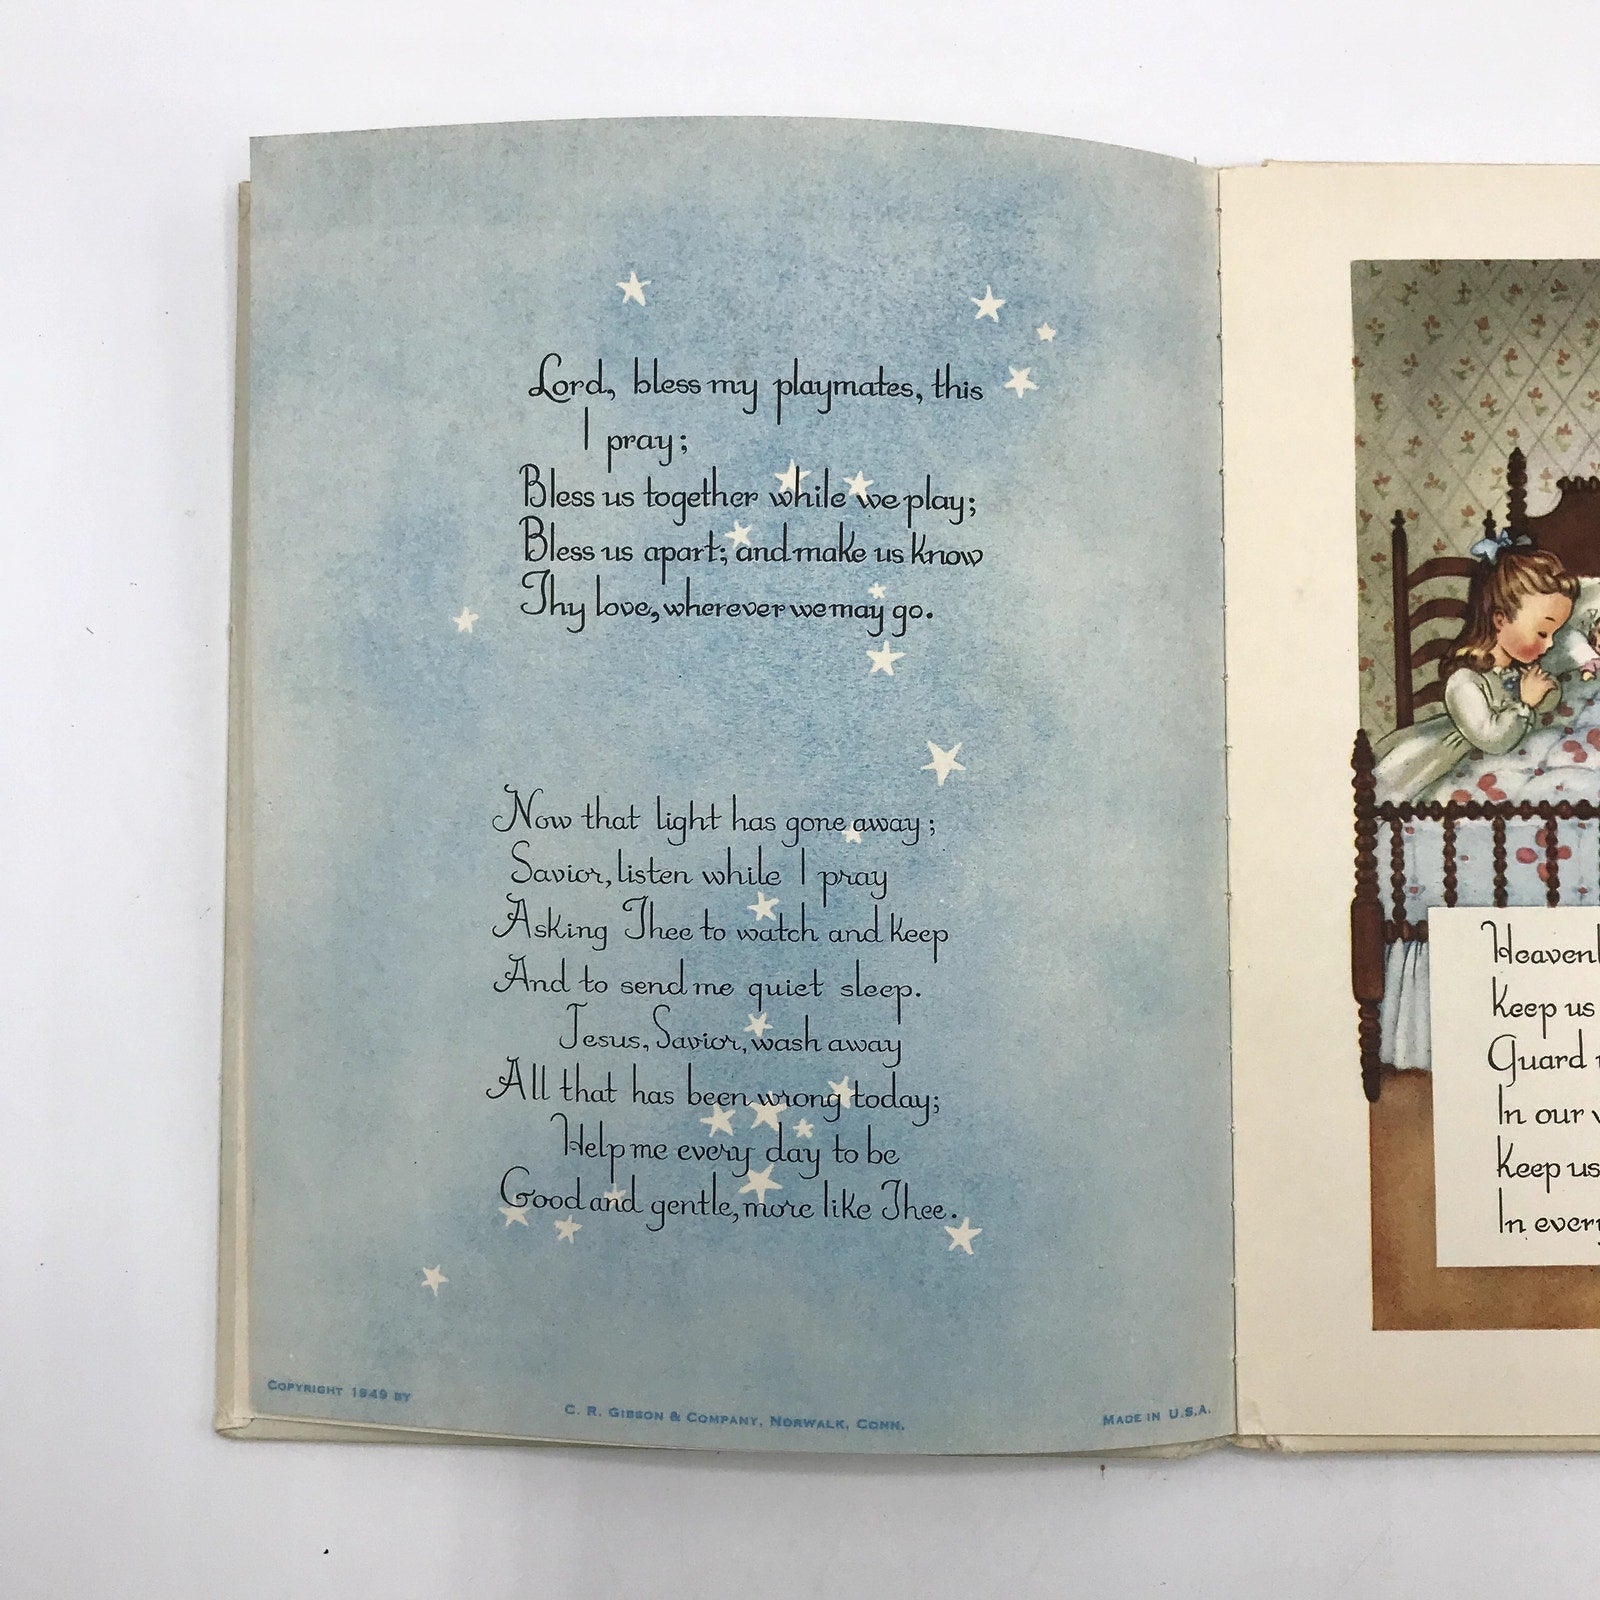 Lord, bless my playmates, this
I pray;
Bless us together while we play;
Bless us apart; and make us know
Thy love, wherever we may go.
Now that light has gone away;
Savior, listen while I pray
Asking Thee to watch and keep
And to send me quiet sleep.
Jesus, Savior, wash away
All that has been wrong today;
Help me every day to be
Good and gentle, more like Thee.
COPYRIGHT 1949 BY
C. R. GIBSON & COMPANY, NORWALK, CONN.
MADE IN U.S.A.
Keep us
Guard
In our
Keep us
In